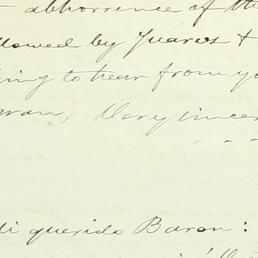 abhorrence of the
llowed by Juarez &
ing to hear from yo
Very sincer
i querido Baron: